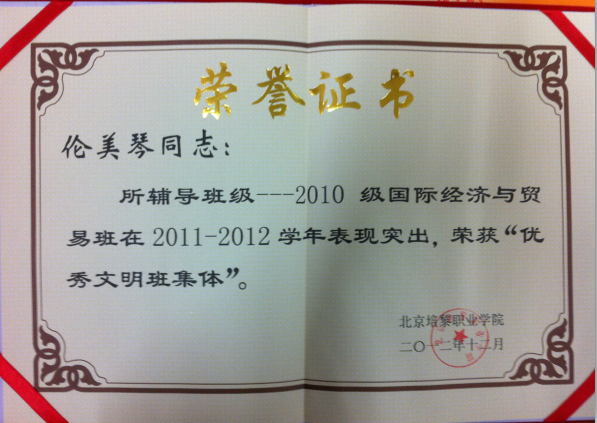 荣誉证书
伦美琴同志：
所辅导班级---2010 级国际经济与贸
易班在 2011-2012 学年表现突出，荣获“优
秀文明班集体”。
北京培黎职业学院
二〇一二年十二月